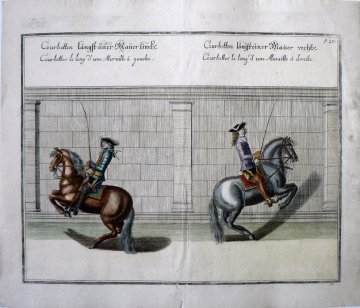 Courbetten längst einer Mauer linck:
Courbettes le long d'une Muraille à gauche.
Courbetten längst einer Mauer rechts:
Courbettes le long d'une Muraille à droite.